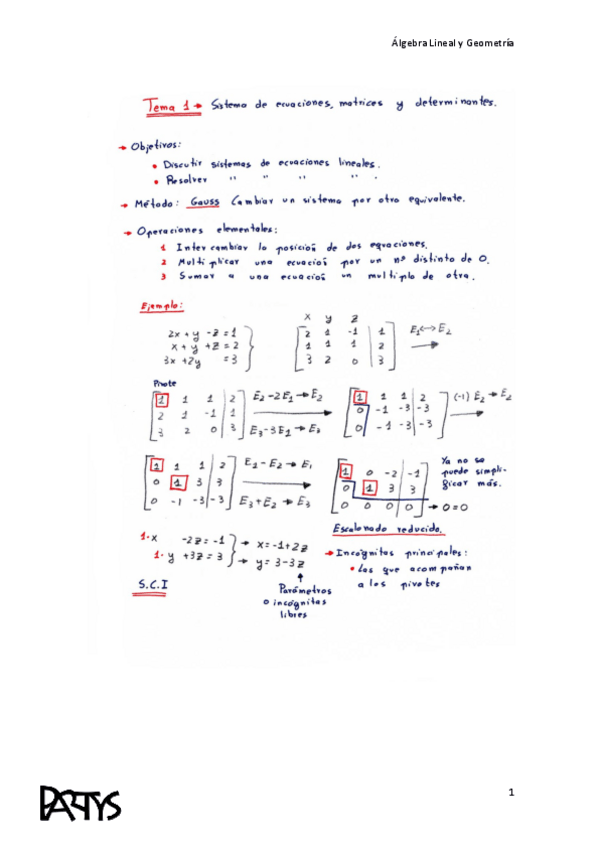 Álgebra Lineal y Geometría
Tema 1 → Sistema de ecuaciones, matrices y determinantes.
→ Objetivos:
• Discutir sistemas de ecuaciones lineales.
• Resolver " " " " .
→ Método: Gauss Cambiar un sistema por otro equivalente.
→ Operaciones elementales:
1 Intercambiar la posición de dos equaciones.
2 Multiplicar una ecuación por un nº distinto de 0.
3 Sumar a una ecuación un multiplo de otra.
Ejemplo:
x y z
2x + y - z = 1
x + y + z = 2
3x + 2y = 3
2 1 -1 | 1
1 1 1 | 2
3 2 0 | 3
E₁ ↔ E₂
Pivote
1 1 1 | 2
2 1 -1 | 1
3 2 0 | 3
E₂ - 2E₁ → E₂
E₃ - 3E₁ → E₃
1 1 1 | 2
0 -1 -3 | -3
0 -1 -3 | -3
(-1) E₂ → E₂
1 1 1 | 2
0 1 3 | 3
0 -1 -3 | -3
E₁ - E₂ → E₁
E₃ + E₂ → E₃
1 0 -2 | -1
0 1 3 | 3
0 0 0 | 0 → 0=0
Ya no se
puede simpli-
ficar más.
Escalonado reducido.
1·x -2z = -1 → x = -1+2z
1·y +3z = 3 → y = 3-3z
S.C.I
Parámetros
o incógnitas
libres
→ Incógnitas principales:
• Las que acompañan
a los pivotes
PARTYS
1